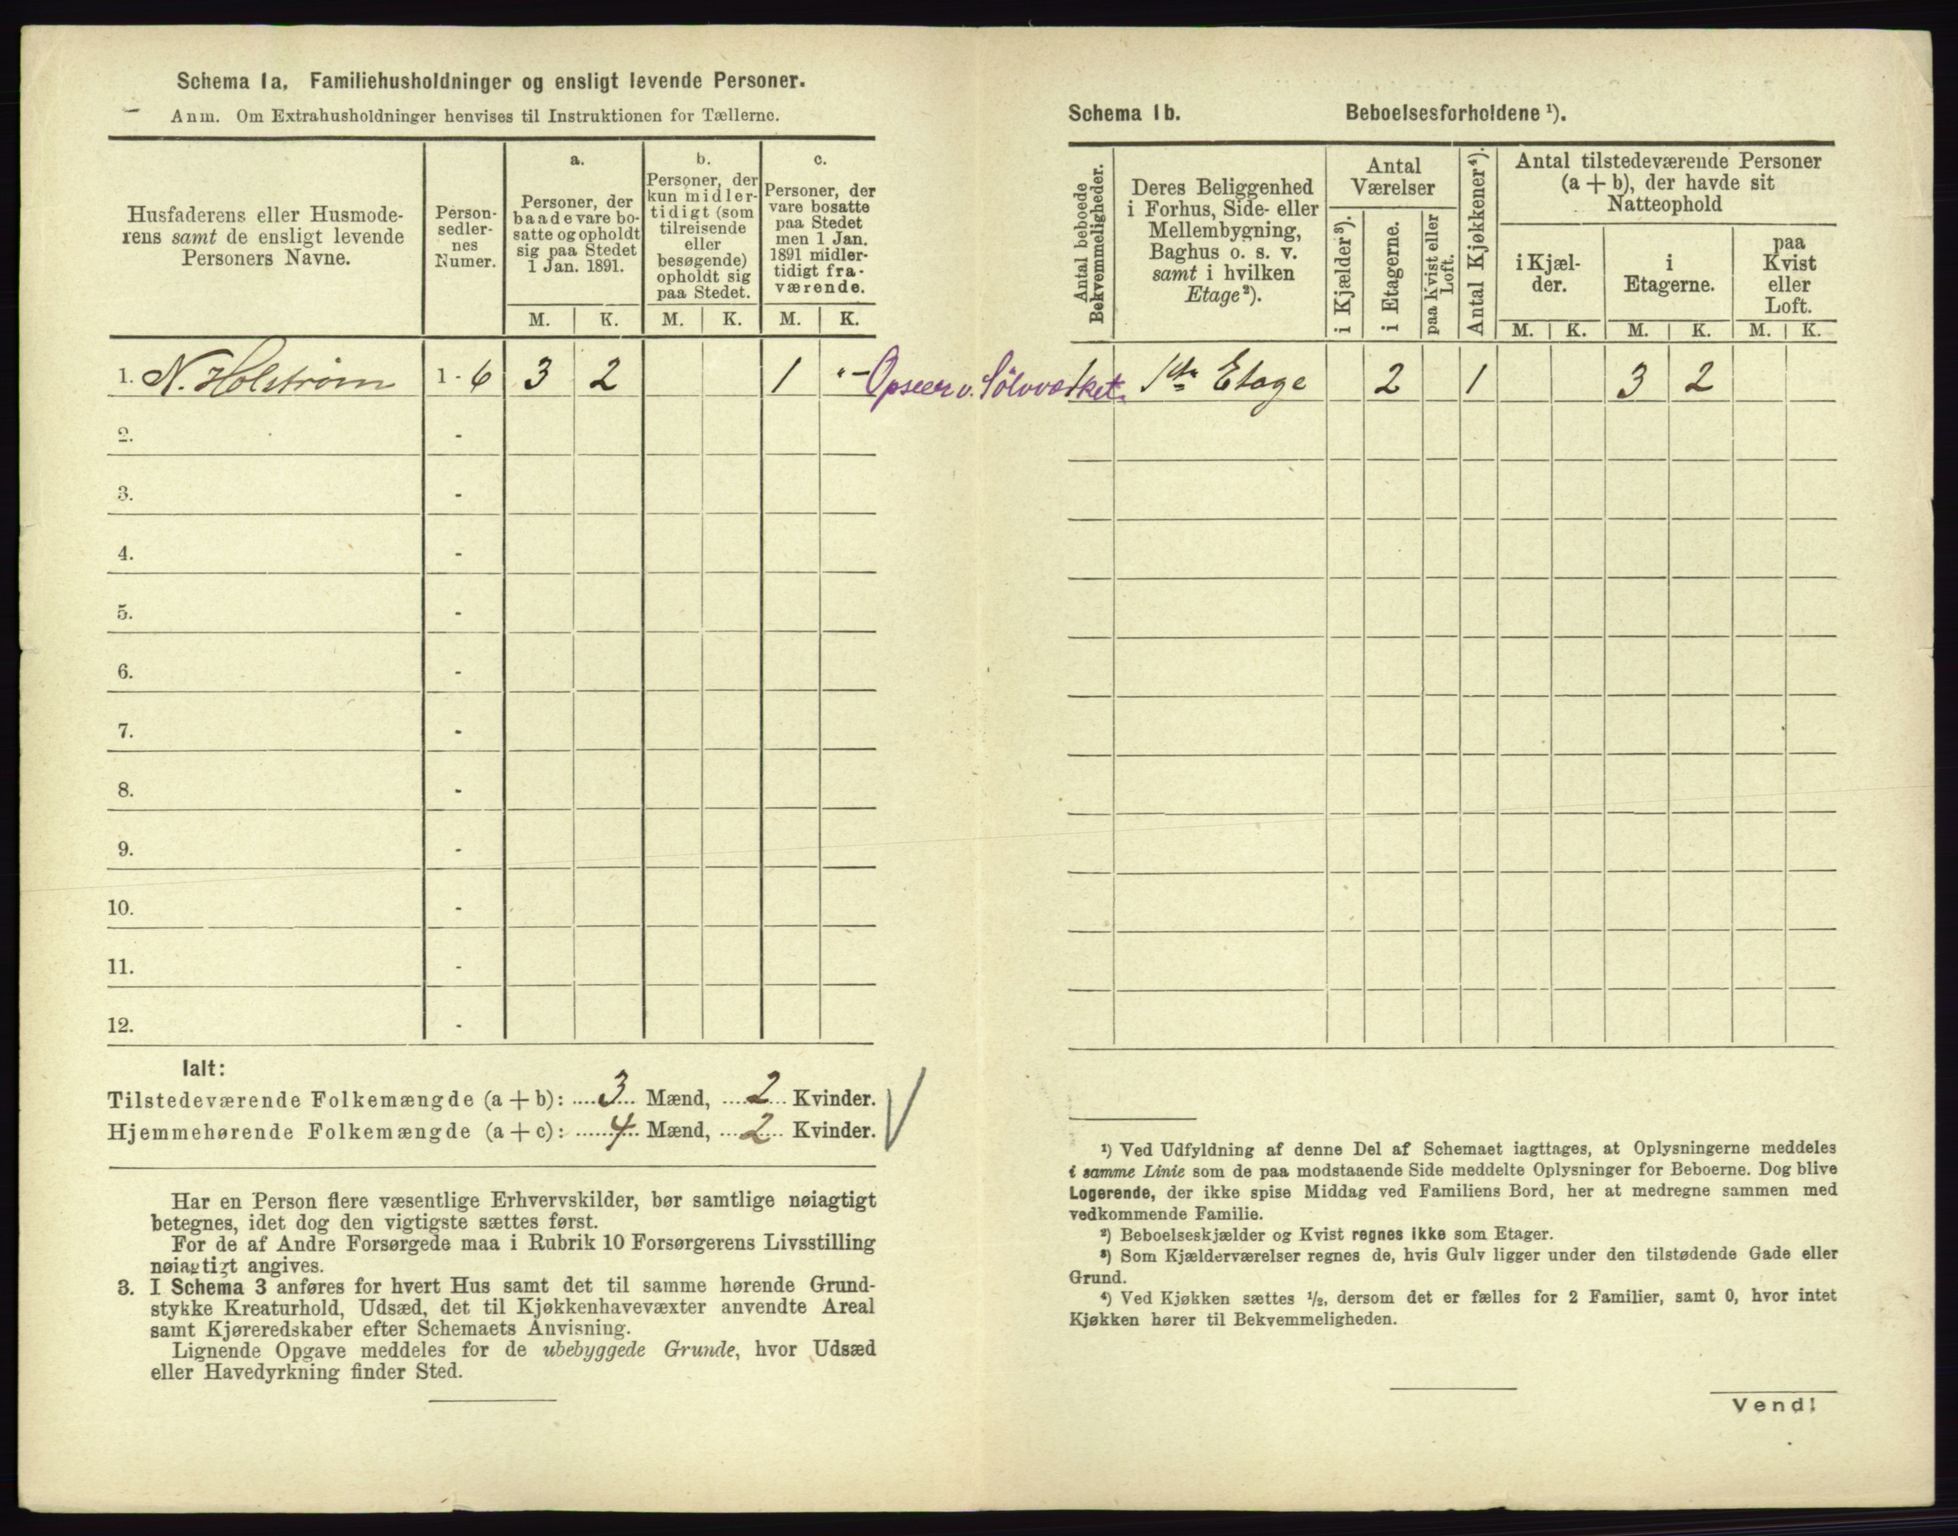 Schema 1a. Familiehusholdninger og ensligt levende Personer.
Anm. Om Extrahusholdninger henvises til Instruktionen for Tællerne.
Husfaderens eller Husmode-
rens samt de ensligt levende
Personers Navne.
Person-
sedler-
nes
Numer.
a.
Personer, der
baade vare bo-
satte og opholdt
sig paa Stedet
1 Jan. 1891.
b.
Personer, der
kun midler-
tidigt (som
tilreisende
eller
besøgende)
opholdt sig
paa Stedet.
c.
Personer, der
vare bosatte
paa Stedet
men 1 Jan.
1891 midler-
tidigt fra-
værende.
M. K. M. K. M. K.
1. N. Holstrøm 1 - 6 3 2 1 "-
2. -
3. -
4. -
5. -
6. -
7. -
8. -
9. -
10. -
11. -
12. -
Ialt:
Tilstedeværende Folkemængde (a + b): 3 Mænd, 2 Kvinder.
Hjemmehørende Folkemængde (a + c): 4 Mænd, 2 Kvinder.
Har en Person flere væsentlige Erhvervskilder, bør samtlige nøiagtigt
betegnes, idet dog den vigtigste sættes først.
For de af Andre Forsørgede maa i Rubrik 10 Forsørgerens Livsstilling
nøiagtigt angives.
3. I Schema 3 anføres for hvert Hus samt det til samme hørende Grund-
stykke Kreaturhold, Udsæd, det til Kjøkkenhavevæxter anvendte Areal
samt Kjøreredskaber efter Schemaets Anvisning.
Lignende Opgave meddeles for de ubebyggede Grunde, hvor Udsæd
eller Havedyrkning finder Sted.
Schema 1b. Beboelsesforholdene ¹).
Antal beboede
Bekvemmeligheder.
Deres Beliggenhed
i Forhus, Side- eller
Mellembygning,
Baghus o. s. v.
samt i hvilken
Etage²).
Antal
Værelser
i Kjælder³).
i Etagerne.
paa Kvist eller
Loft.
Antal Kjøkkener⁴).
Antal tilstedeværende Personer
(a + b), der havde sit
Natteophold
i Kjæl-
der.
i
Etagerne.
paa
Kvist
eller
Loft.
M. K. M. K. M. K.
Opseer v. Sölvværket. 1 1ste Etage 2 1 3 2
¹) Ved Udfyldning af denne Del af Schemaet iagttages, at Oplysningerne meddeles
i samme Linie som de paa modstaaende Side meddelte Oplysninger for Beboerne. Dog blive
Logerende, der ikke spise Middag ved Familiens Bord, her at medregne sammen med
vedkommende Familie.
²) Beboelseskjælder og Kvist regnes ikke som Etager.
³) Som Kjælderværelser regnes de, hvis Gulv ligger under den tilstødende Gade eller
Grund.
⁴) Ved Kjøkken sættes ½, dersom det er fælles for 2 Familier, samt 0, hvor intet
Kjøkken hører til Bekvemmeligheden.
Vend!